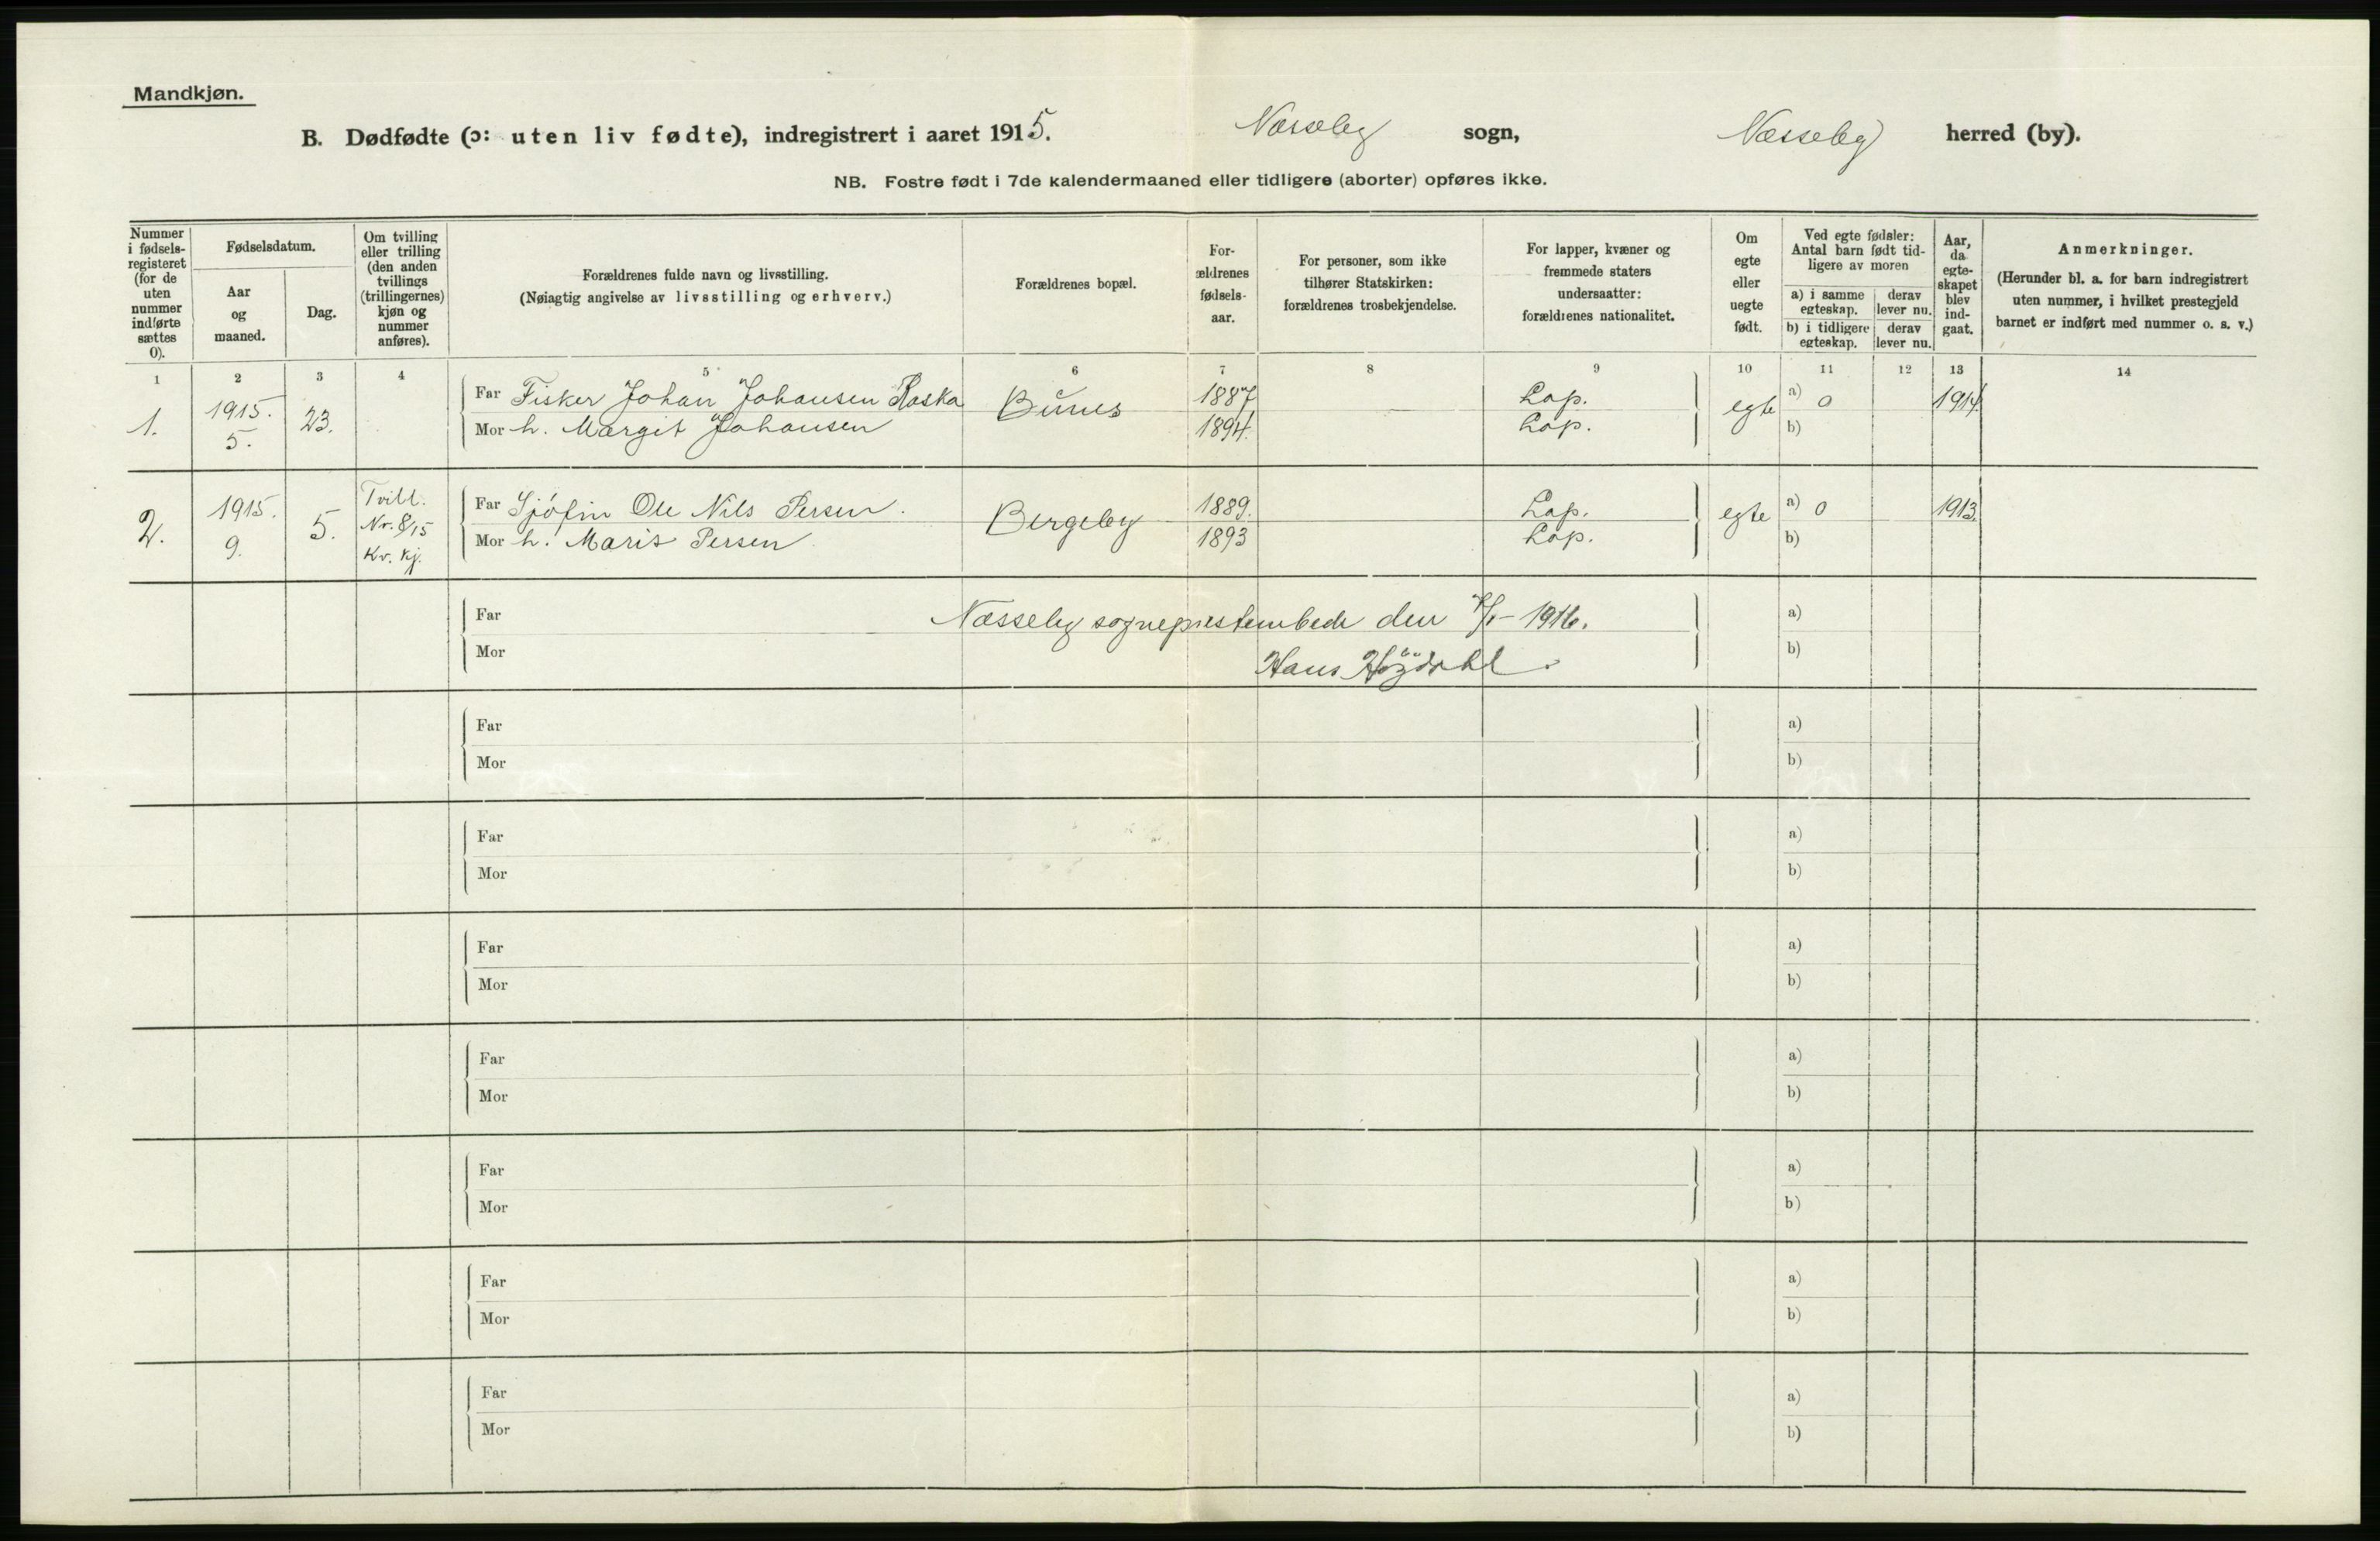 Mandkjøn.
B. Dødfødte (ɔ: uten liv fødte), indregistrert i aaret 1915. Næsseby sogn, Næsseby herred (by).
NB. Fostre født i 7de kalendermaaned eller tidligere (aborter) opføres ikke.
Nummer i fødsels-registeret (for de uten nummer indførte sættes 0).
Fødselsdatum.
Aar og maaned.
Dag.
Om tvilling eller trilling (den anden tvillings (trillingernes) kjøn og nummer anføres).
Forældrenes fulde navn og livsstilling.
(Nøiagtig angivelse av livsstilling og erhverv.)
Forældrenes bopæl.
For-ældrenes fødsels-aar.
For personer, som ikke tilhører Statskirken: forældrenes trosbekjendelse.
For lapper, kvæner og fremmede staters undersaatter: forældrenes nationalitet.
Om egte eller uegte født.
Ved egte fødsler: Antal barn født tid-ligere av moren
a) i samme egteskap. derav lever nu.
b) i tidligere egteskap. derav lever nu.
Aar, da egte-skapet blev ind-gaat.
Anmerkninger.
(Herunder bl. a. for barn indregistrert uten nummer, i hvilket prestegjeld barnet er indført med nummer o. s. v.)
1 2 3 4 5 6 7 8 9 10 11 12 13 14
1. 1915. 5. 23. Far Fisker Johan Johansen Raska Bunes 1887 Lap. egte a) 0 1914.
Mor h. Margit Johansen 1894. Lap. b)
2. 1915. 9. 5. Tvill. Nr. 8/15 Kv. kj. Far Sjöfin Ole Nils Persen. Bergeby 1889. Lap. egte a) 0 1913.
Mor h. Marit Persen 1893 Lap. b)
Far Næsseby sogneprestembede den 7/1 - 1916. a)
Mor Hans Höÿdahl. b)
Far a)
Mor b)
Far a)
Mor b)
Far a)
Mor b)
Far a)
Mor b)
Far a)
Mor b)
Far a)
Mor b)
Far a)
Mor b)